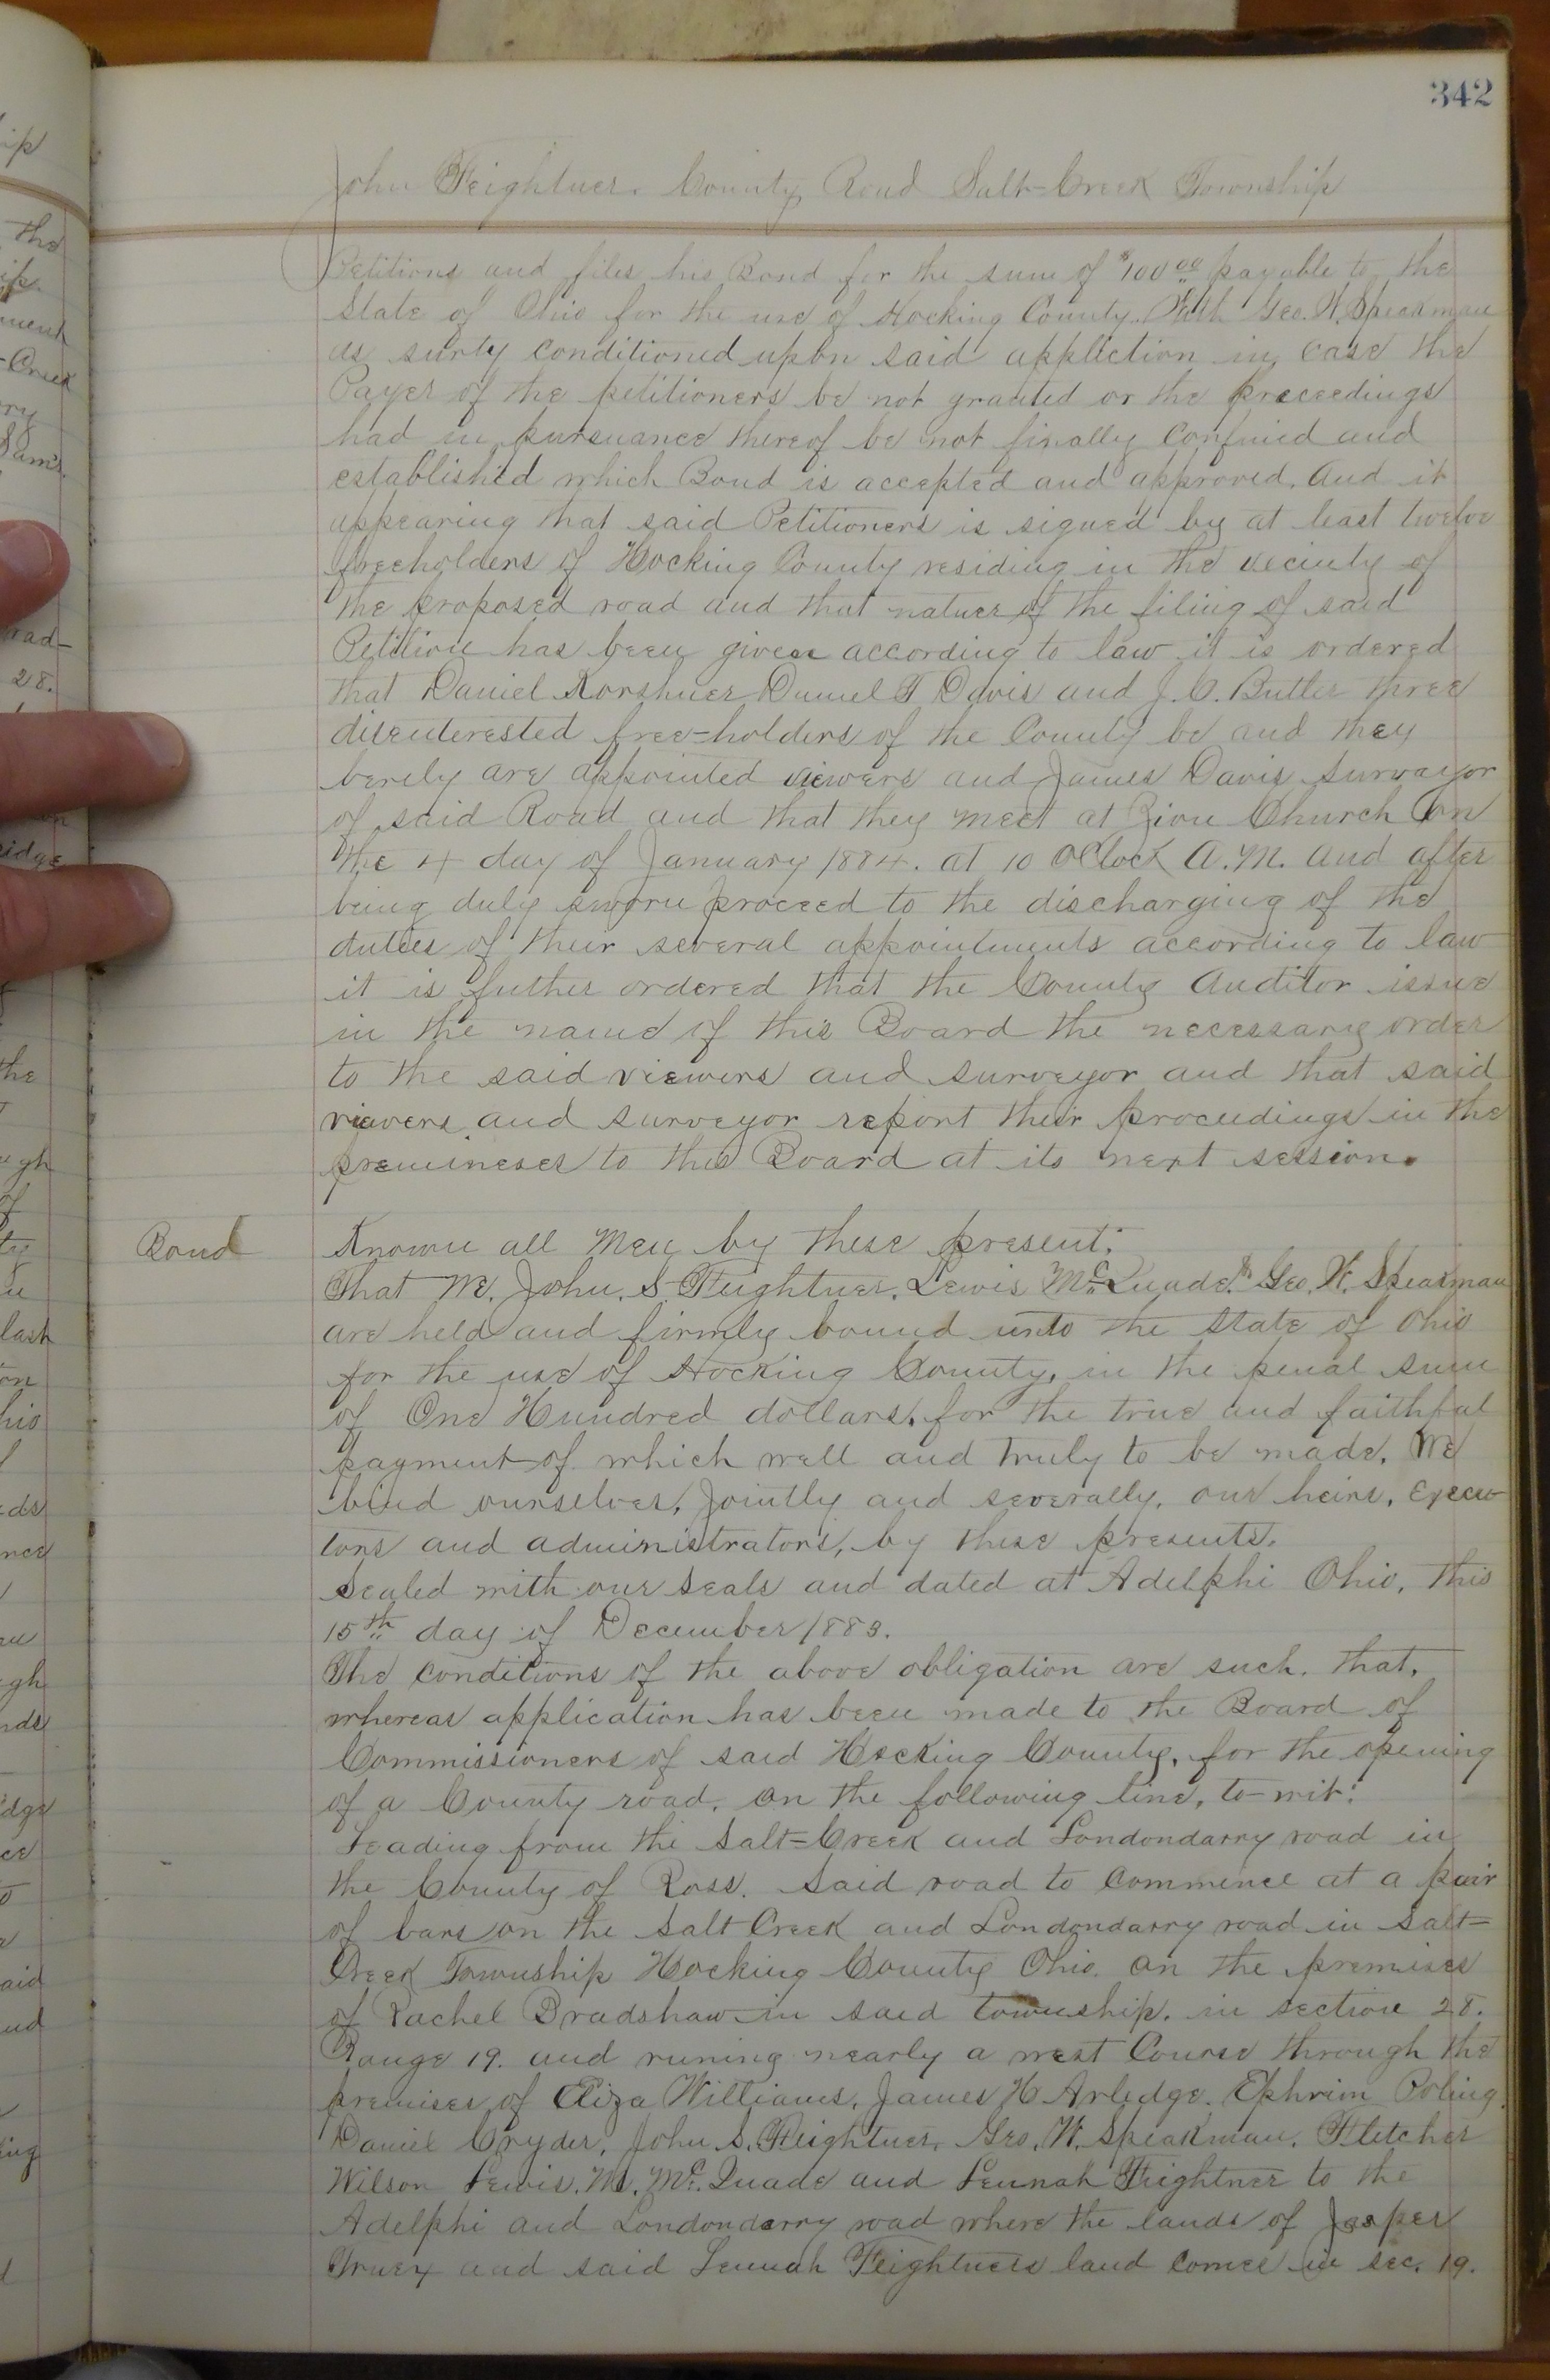 342
John Feightner. County Road Salt-Creek Township
Petitions and files his Bond for the sum of $100.00 payable to the
State of Ohio for the use of Hocking County. With Geo. W. Speakman
as surty conditioned upon said appliction in case the
Payer of the petitioners be not granted or the preceedings
had in pursuance thereof be not finally confimed and
established which Bond is accepted and approved. And it
appearing that said Petitioners is signed by at least twelve
freeholders of Hocking County residing in the vecinty of
the proposed road and that natues of the filing of said
Petition has been given according to law it is ordered
that Daniel Karshner Daniel T Davis and J. C. Butler three
disenterested free=holders of the County be and they
berely are appointed viewers and James Davis Survayor
of said Road and that they meet at Zion Church on
the 4 day of January 1884. at 10 OClock A.M. and after
being duly sworn proceed to the discharging of the
duties of their several appointments according to law
it is futher ordered that the County Auditor issue
in the name of this Board the necessary order
to the said viewers and surveyor and that said
viewers and surveyor report their proceedings in the
premineses to this Board at its next session.
Bond
Known all Men by these present:
That We, John. S. Feightner, Lewis McQuade & Geo. W. Speakman
are held and firmly bound unto the State of Ohio
for the use of Hocking County, in the penal sum
of One Hundred dollars, for the true and faithful
payment of which well and truly to be made. We
bind ourselves, Jointly and severally, our heirs, execu-
tors and administrators, by these presents.
Sealed with our seals and dated at Adelphi Ohio, this
15th day of December 1883.
The conditions of the above obligation are such. that,
whereas application has been made to the Board of
Commissioners of said Hocking County, for the opening
of a County road, on the following line, to-wit:
Leading from the Salt=Creek and Londondarry road in
the County of Ross. Said road to Commence at a pair
of bars on the Salt Creek and Londondarry road in Salt=
Creek Township Hocking County Ohio. on the premises
of Rachel Bradshaw in said township. in section 28.
Range 19. and runing nearly a west Course through the
premises of Eliza Williams, James H Arledge, Ephrim Poling.
Daniel Cryder, John S. Feightner, Geo. W. Speakman. Fletcher
Wilson Lewis. M. McQuade and Lennah Feightner to the
Adelphi and Londonderry road where the lands of Jasper
Truex and said Lennah Feightners land comes in sec. 19.